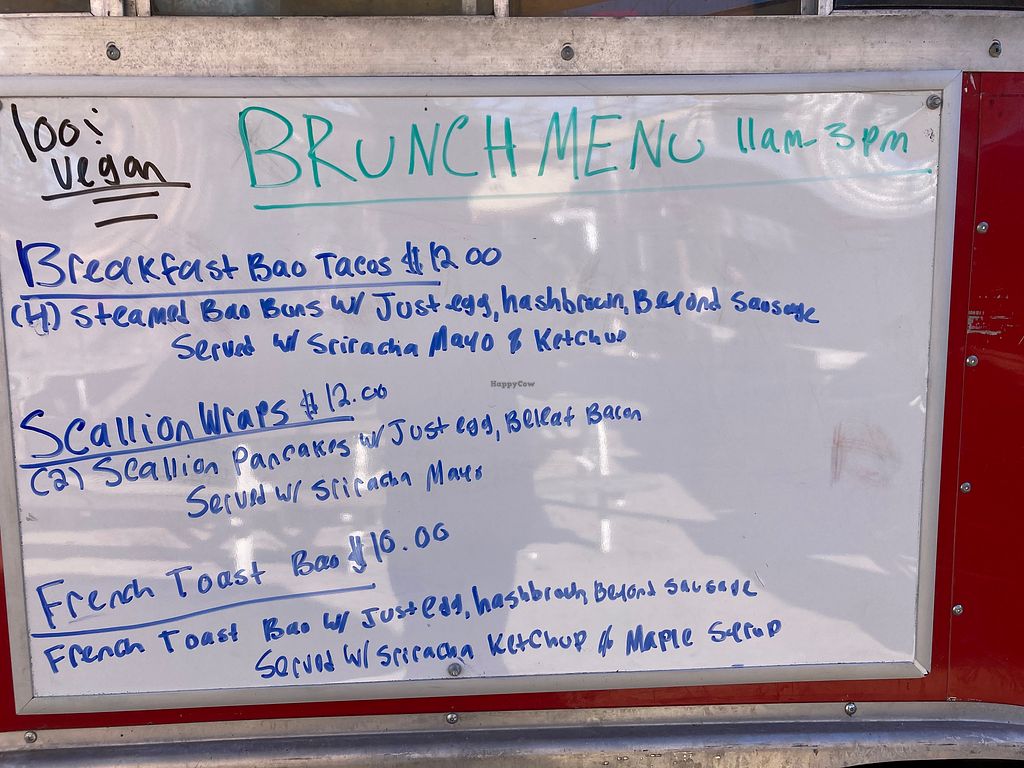 100% vegan
BRUNCH MENU 11am-3pm
Breakfast Bao Tacos $12.00
(4) Steamed Bao Buns w/ Just egg, hashbrown, Beyond Sausage
Served w/ Sriracha Mayo & Ketchup
HappyCow
Scallion Wraps $12.00
(2) Scallion Pancakes w/ Just egg, BeLeaf Bacon
Served w/ Sriracha Mayo
French Toast Bao $10.00
French Toast Bao w/ Just egg, hashbrown, Beyond Sausage
Served w/ Sriracha Ketchup & Maple Serup